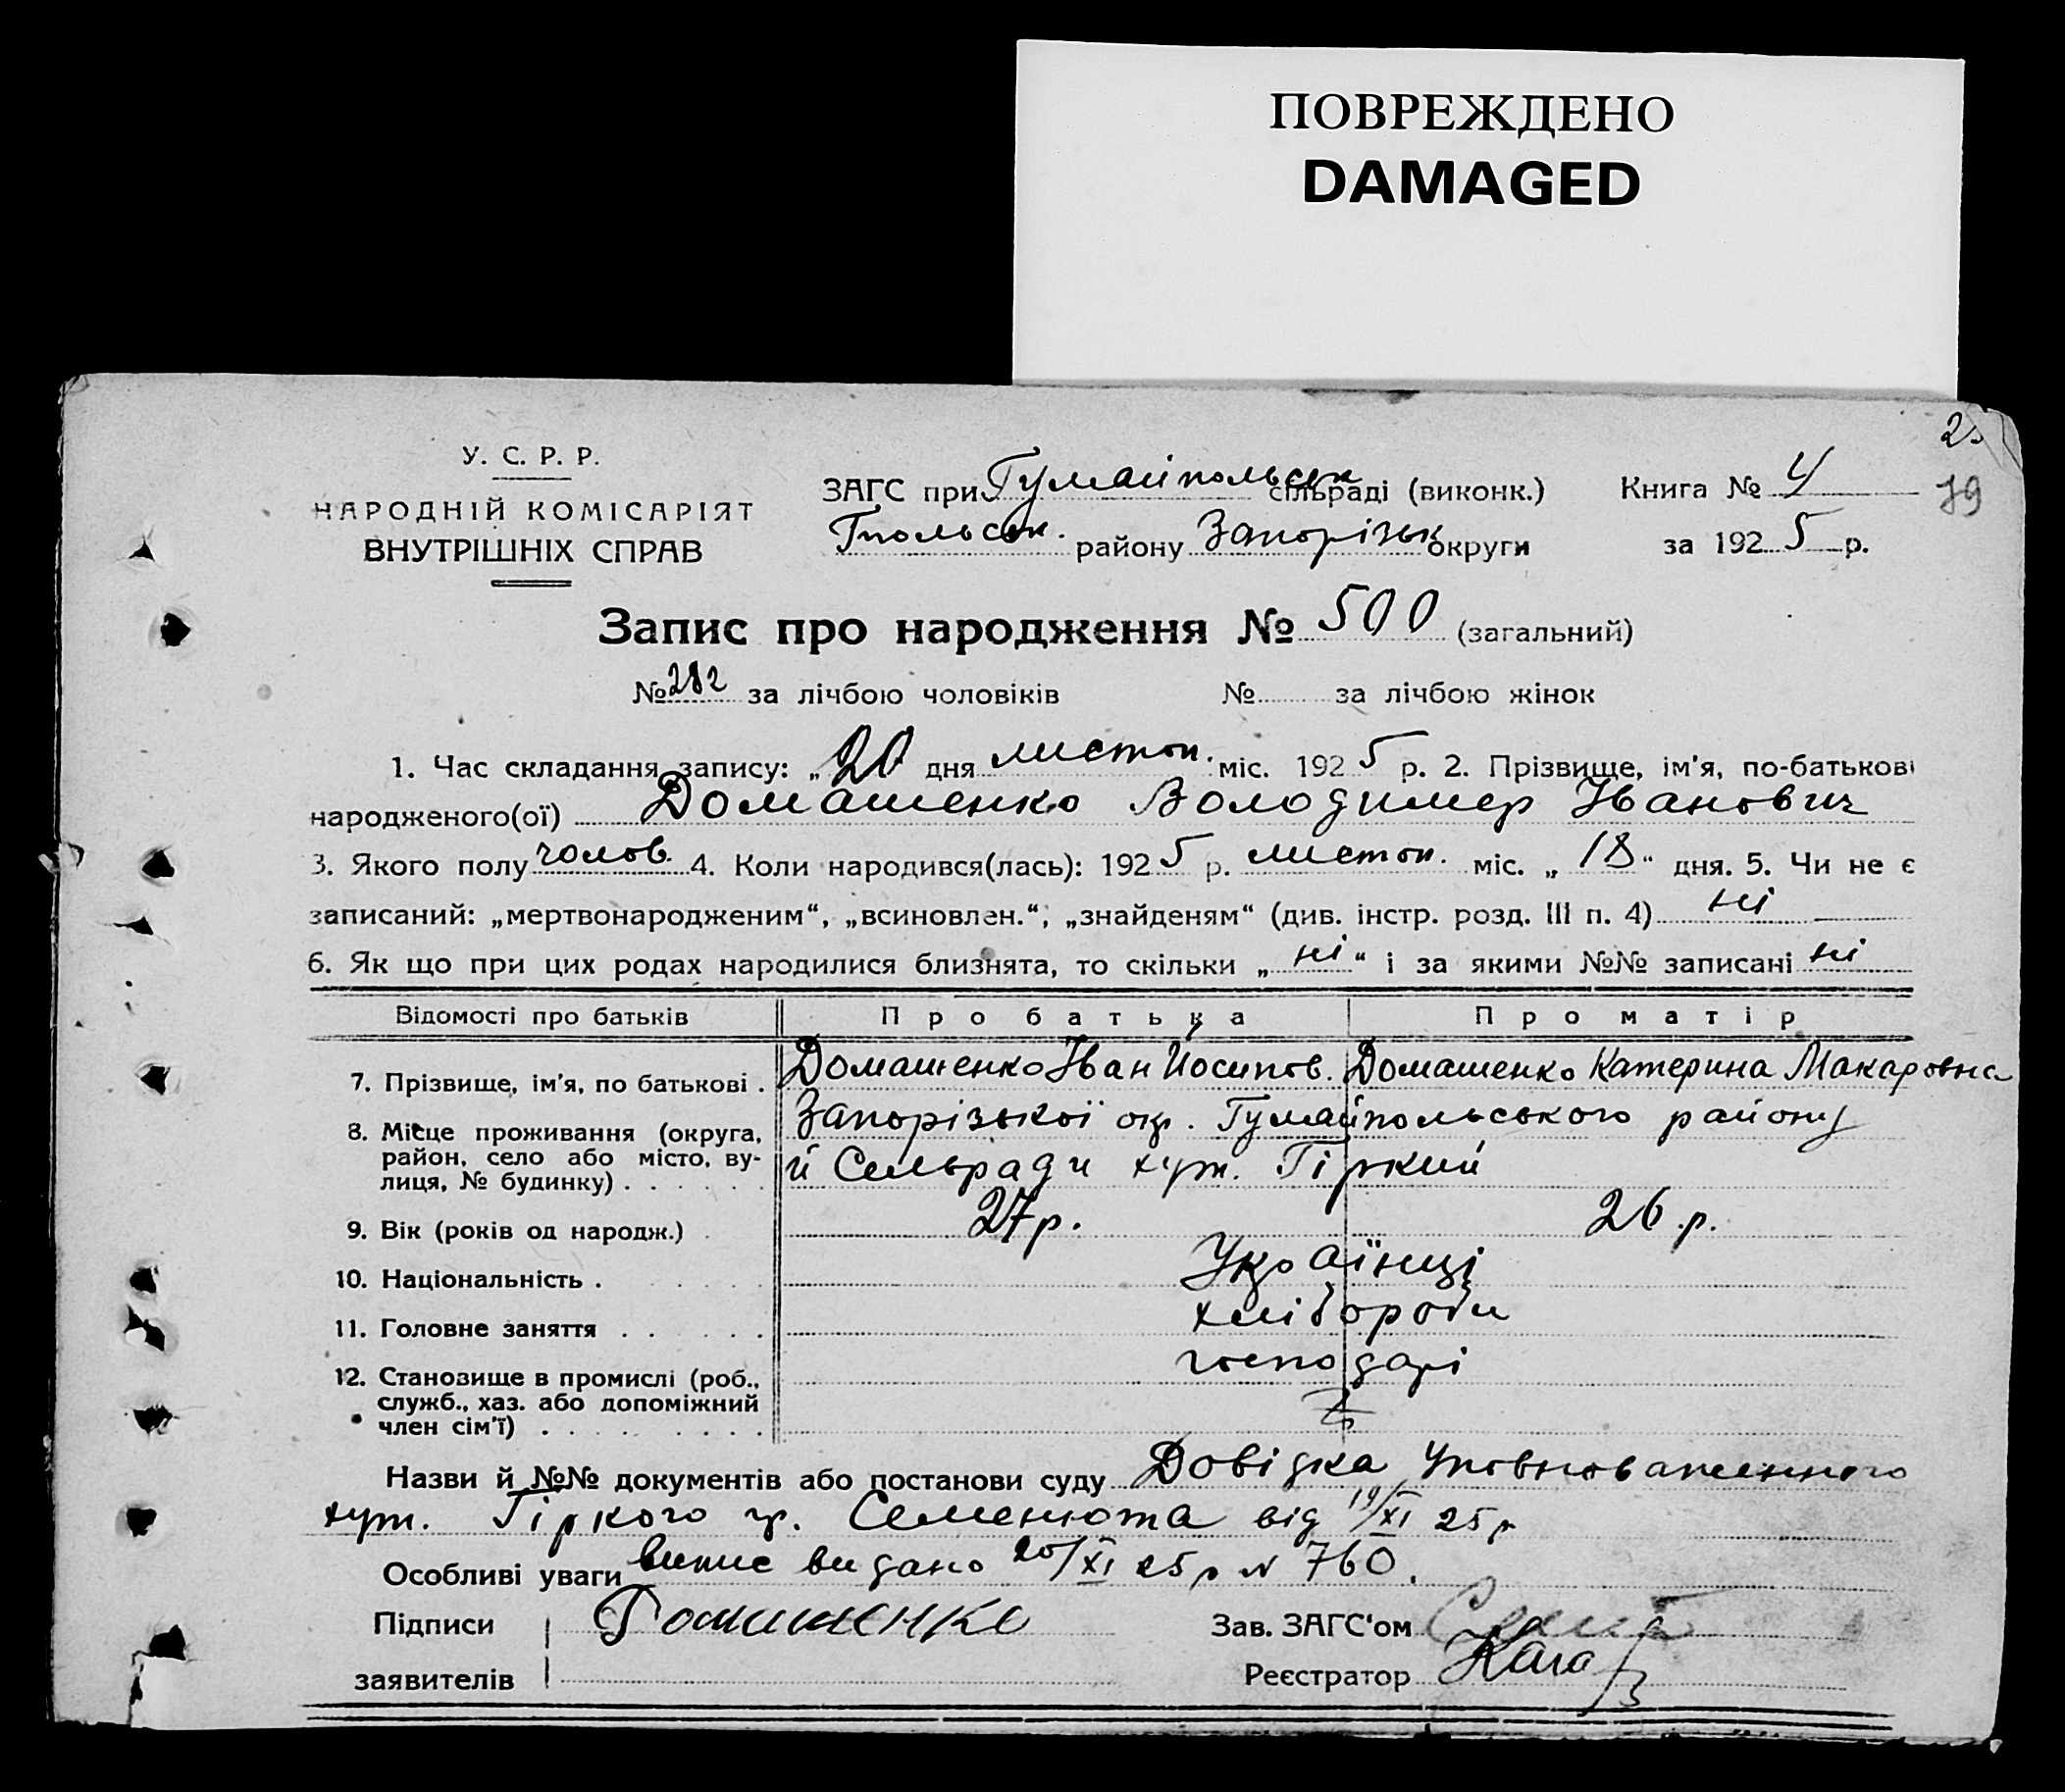 ПОВРЕЖДЕНО
DAMAGED
79
У. С. Р. Р.
НАРОДНІЙ КОМІСАРІЯТ
ВНУТРІШНІХ СПРАВ
ЗАГС при Гумайпольськ сільраді (виконк.) Книга № 4
Гпольськ. району Запорізьк округи за 1925 р.
Запис про народження № 500 (загальний)
№ 282 за лічбою чоловіків № за лічбою жінок
1. Час складання запису: „20 дня листоп. міс. 1925 р. 2. Прізвище, ім'я, по-батькові
народженого(ої) Домашенко Володимер Іванович
3. Якого полу чолов. 4. Коли народився(лась): 1925 р. листоп. міс. „18“ дня. 5. Чи не є
записаний: „мертвонародженим“, „всиновлен.“, „знайденям“ (див. інстр. розд. III п. 4) ні
6. Як що при цих родах народилися близнята, то скільки „ні“ і за якими №№ записані ні
Відомості про батьків Про батька Про матір
7. Прізвище, ім'я, по батькові . Домашенко Іван Йосипов. Домашенко Катерина Макаровна
8. Місце проживання (округа, район, село або місто, вулиця, № будинку) . Запорізької окр. Гумайпольського району
й Сельради хут. Гіркий
9. Вік (років од народж.) 27 р. 26 р.
10. Національність . Українці
11. Головне заняття . хлібороби
12. Становище в промислі (роб., служб., хаз. або допоміжний член сім'ї) . господарі
Назви й №№ документів або постанови суду Довідка Уповноваженного
хут. Гіркого гр. Семенюта від 19/XI 25 р
Особливі уваги Випис видано 20/XI 25 р N 760.
Підписи заявителів Домашенко
Зав. ЗАГС'ом
Реєстратор